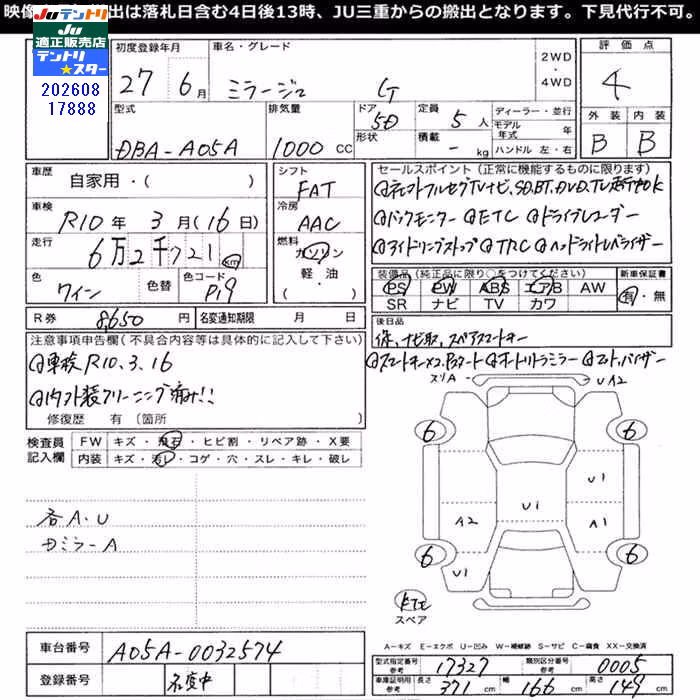 映像 出は落札日含む4日後13時、JU三重からの搬出となります。下見代行不可。
Ju テントリ
JU 適正販売店
テントリ★スター
202608
17888
初度登録年月 車名・グレード 2WD・4WD 評価点
27年6月 ミラージュ G 4
型式 排気量 ドア形状 定員 積載 ディーラー・並行 外装 内装
DBA-A05A 1000cc 5D 5人 -kg モデル年式 年 B B
ハンドル 左・右
車歴 自家用・( ) シフト FAT
車検 R10年3月(16日) 冷房 AAC
走行 6万2千721km 燃料 ガソリン 軽油 ( )
色 ワイン 色替 色コード P19
R券 8,650円 名変通知期限 月 日
セールスポイント(正常に機能するものに限ります)
TVナビ、SD、BT、DVD、TV走行中OK
バックモニター ETC ドライブレコーダー
アイドリングストップ TRC ヘッドライトレベライザー
装備品(純正品に限り○をつけてください) 新車保証書
PS PW ABS エアB AW 有・無
SR ナビ TV カワ
後日品
保、ナビ取、スペアスマートキー
スマートキー×2 オートリトラミラー
注意事項申告欄(不具合内容等は具体的に記入して下さい)
車検R10.3.16
内外装クリーニング済み!!
修復歴 有 (箇所 )
検査員記入欄 FW キズ・飛石・ヒビ割・リペア跡・X要
内装 キズ・汚レ・コゲ・穴・スレ・キレ・破レ
各A.U
ミラーA
スリA UA2
6 6
U1
A2 U1 A1
6 6
U1
スペア
A-キズ E-エクボ U-凹み W-補修跡 S-サビ C-腐食 XX-交換済
車台番号 A05A-0032574
登録番号 名変中
型式指定番号 参考 17327 類別区分番号 参考 0005
車庫証明用 参考 長さ 371cm 幅 166cm 高さ 149cm